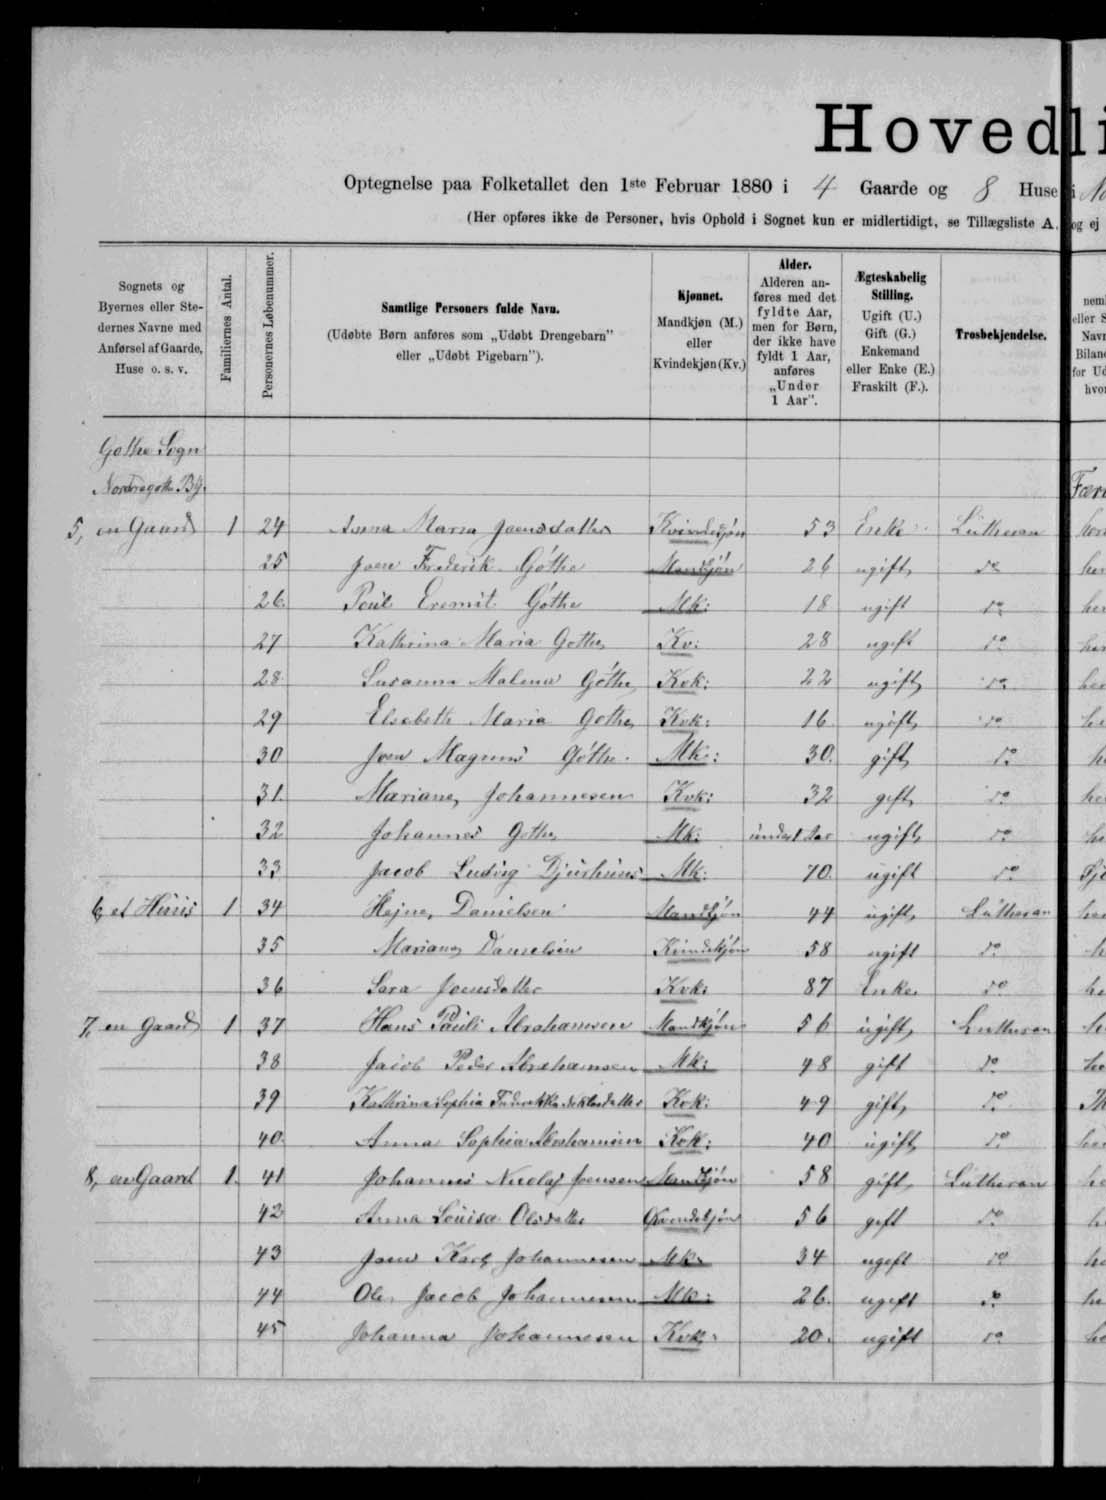 Hovedli
Optegnelse paa Folketallet den 1ste Februar 1880 i 4 Gaarde og 8 Huse i No
(Her opføres ikke de Personer, hvis Ophold i Sognet kun er midlertidigt, se Tillægsliste A. og ej
Sognets og Byernes eller Stedernes Navne med Anførsel af Gaarde, Huse o. s. v.
Familiernes Antal.
Personernes Løbenummer.
Samtlige Personers fulde Navn.
(Udøbte Børn anføres som „Udøbt Drengebarn" eller „Udøbt Pigebarn").
Kjønnet.
Mandkjøn (M.) eller Kvindekjøn (Kv.)
Alder.
Alderen anføres med det fyldte Aar, men for Børn, der ikke have fyldt 1 Aar, anføres „Under 1 Aar".
Ægteskabelig Stilling.
Ugift (U.) Gift (G.) Enkemand eller Enke (E.) Fraskilt (F.).
Trosbekjendelse.
Gothe Sogn
Nordregothe By.
5, en Gaard 1 24 Anna Maria Joensdatter Kvindekjøn 53 Enke Lutheran
25 Joen Frederik Góthe Mandkjøn 26 ugift do
26. Poul Eremit Góthe Mk: 18 ugift do
27 Kathrina Maria Gothe Kv: 28 ugift do
28. Susanna Malena Góthe Kvk: 22 ugift do
29 Elsebeth Maria Gothe Kvk: 16 ugift do
30 Joen Magnus Góthe Mk: 30. gift do
31. Mariane Johannesen Kvk: 32 gift do
32 Johannes Gothe Mk: under 1 Aar ugift do
33 Jacob Ludvig Djurhuus Mk: 70. ugift do
6, et Huus 1 34 Hejne Danielsen Mandkjøn 44 ugift Lutheran
35 Mariane Danielsen Kvindekjøn 58 ugift do
36 Sara Joensdatter Kvk: 87 Enke do
7, en Gaard 1 37 Hans Pauli Abrahamsen Mandkjøn 56 ugift Lutheran
38 Jacob Peder Abrahamsen Mk: 48 gift do
39 Kathrina Sophia Kvk: 49 gift do
40. Anna Sophia Abrahamsen Kvk: 40 ugift do
8, en Gaard 1. 41 Johannes Nicolaj Joensen Mandkjøn 58 gift Lutheran
42 Anna Louisa Olsdatter Qvindekjøn 56 gift do
43 Joen Karl Johannesen Mk: 34 ugift do
44 Ole Jacob Johannesen Mk: 26. ugift do
45 Johanna Johannesen Kvk: 20. ugift do